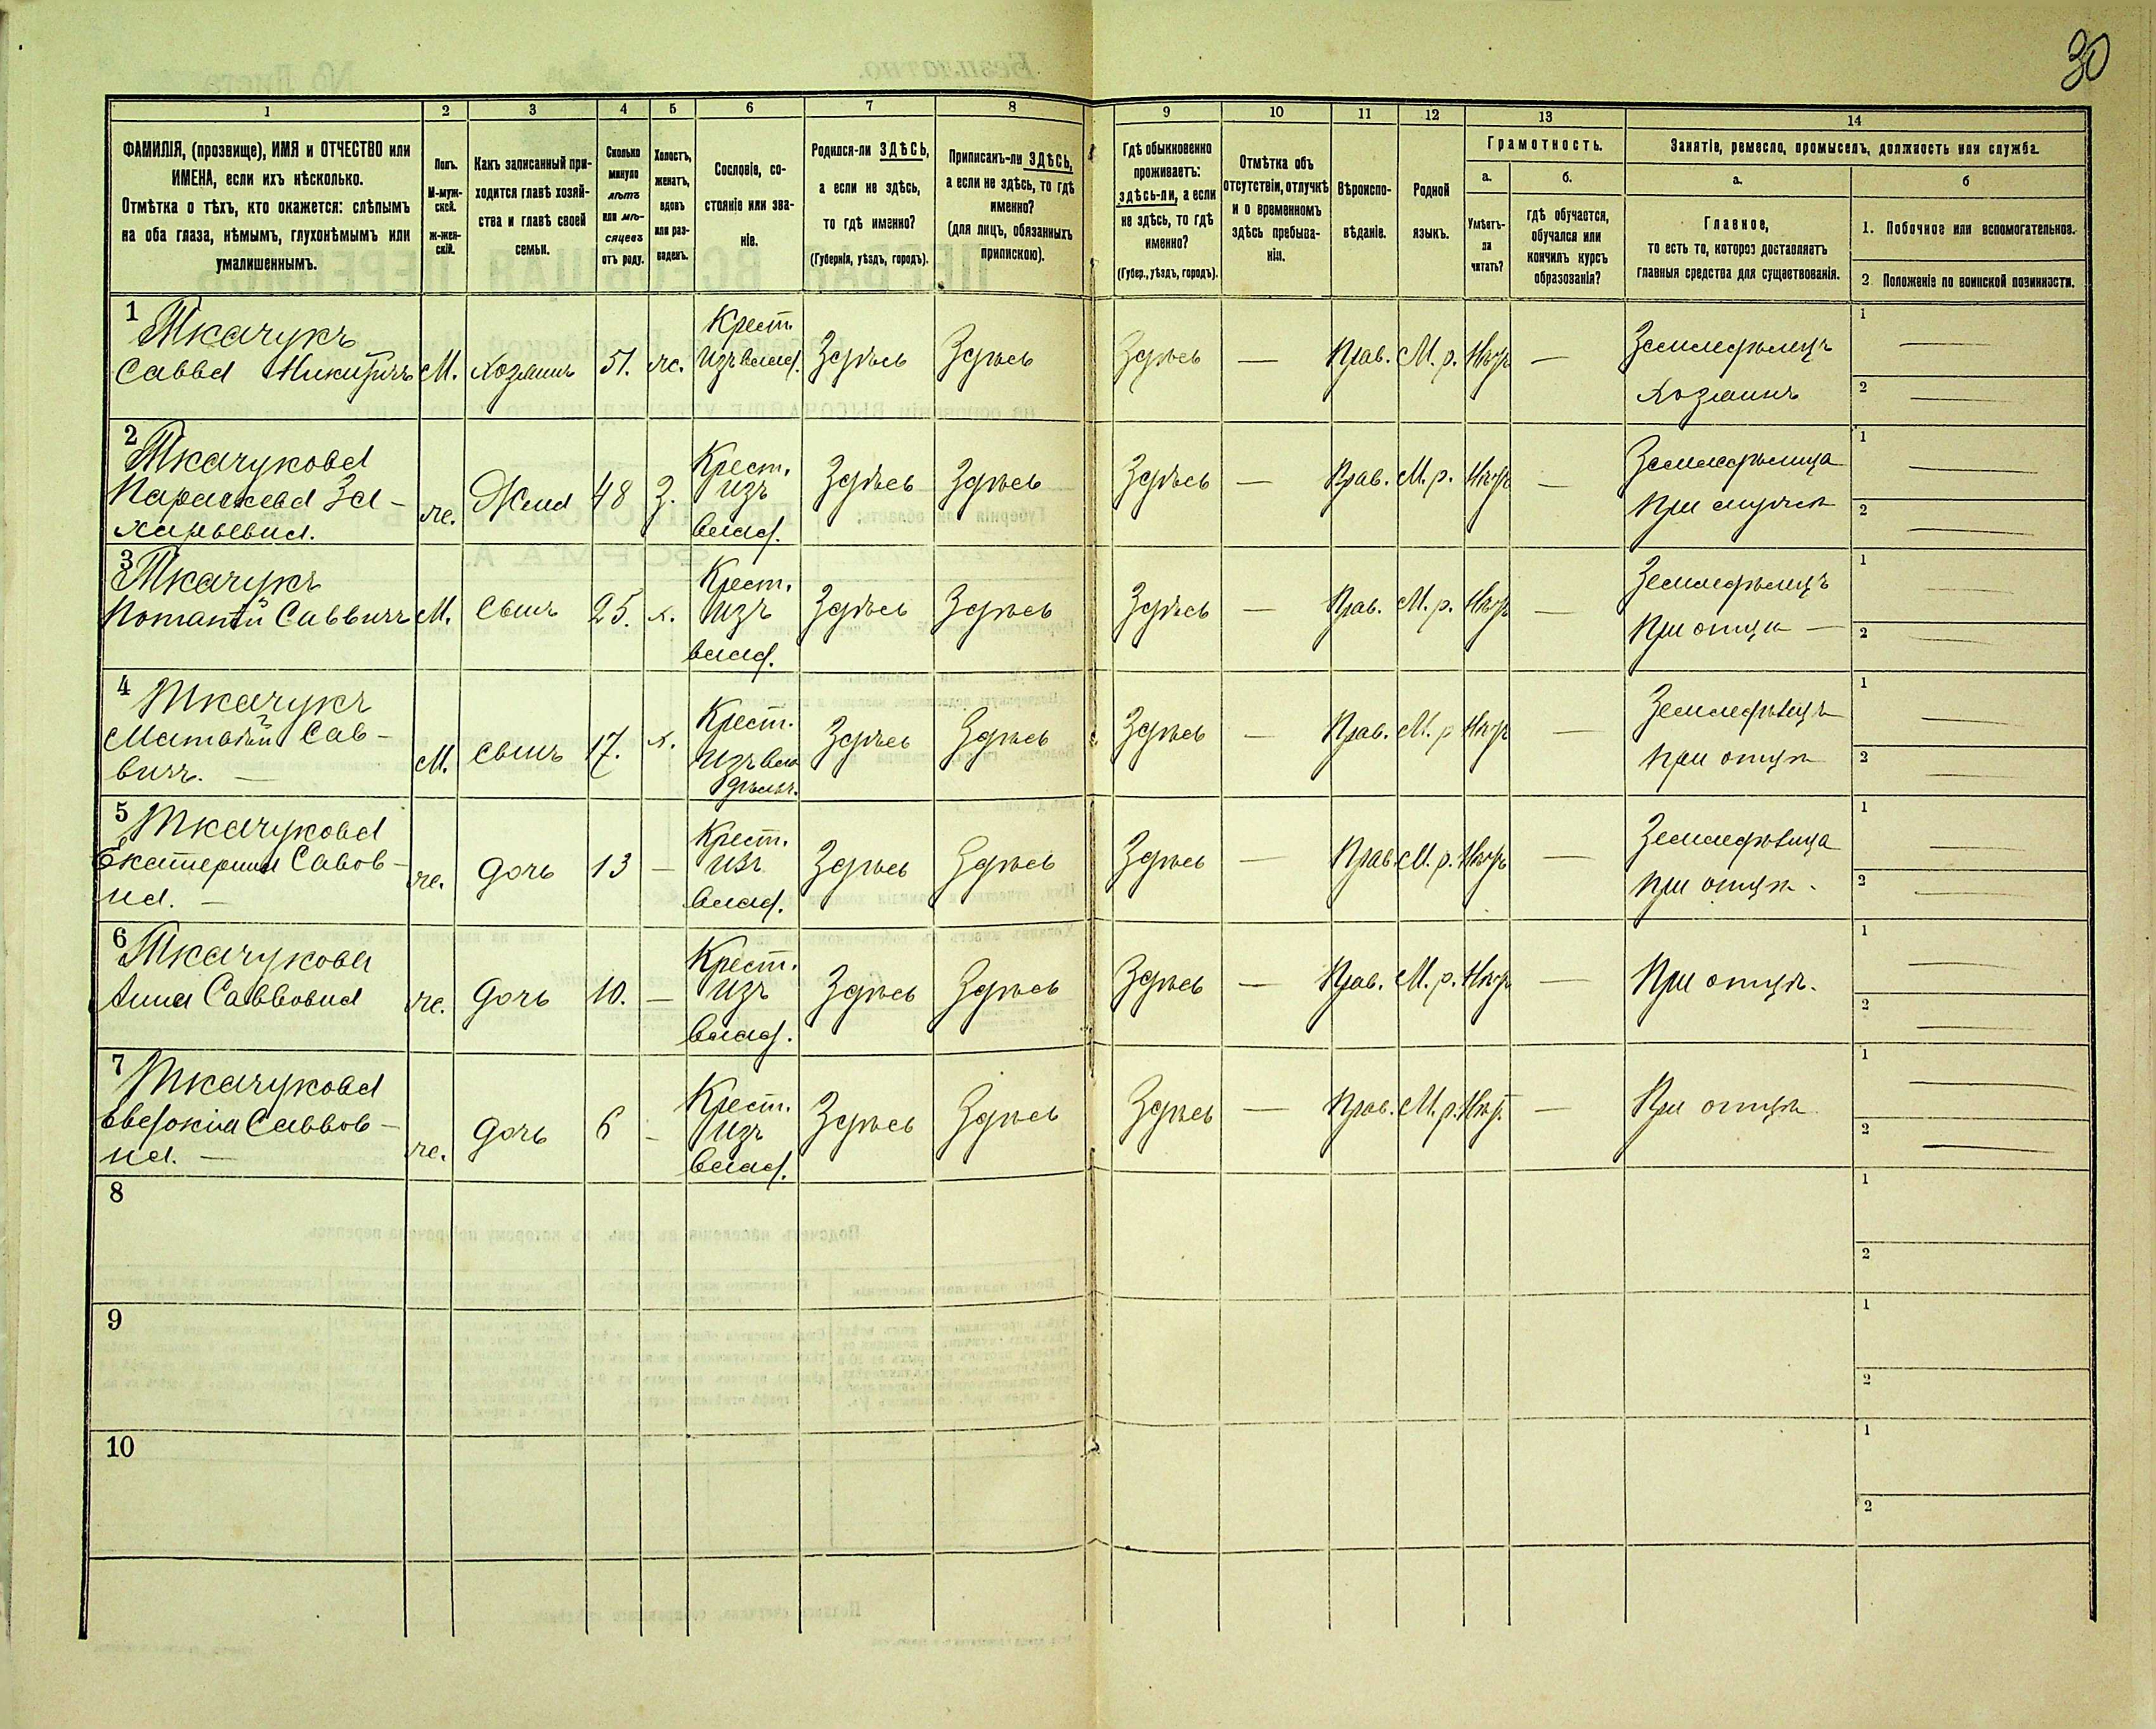 30
1 2 3 4 5 6 7 8 9 10 11 12 13 14
ФАМИЛІЯ, (прозвище), ИМЯ и ОТЧЕСТВО или
ИМЕНА, если ихъ нѣсколько.
Отмѣтка о тѣхъ, кто окажется: слѣпымъ
на оба глаза, нѣмымъ, глухонѣмымъ или
умалишеннымъ.
Полъ.
М-муж-
ской.
ж-жен-
скій.
Какъ записанный при-
ходится главѣ хозяй-
ства и главѣ своей
семьи.
Сколько
минуло
лѣтъ
или мѣ-
сяцевъ
отъ роду.
Холостъ,
женатъ,
вдовъ
или раз-
веденъ.
Сословіе, со-
стояніе или зва-
ніе.
Родился-ли ЗДѢСЬ,
а если не здѣсь,
то гдѣ именно?
(Губернія, уѣздъ, городъ).
Приписанъ-ли ЗДѢСЬ,
а если не здѣсь, то гдѣ
именно?
(для лицъ, обязанныхъ
припискою).
Гдѣ обыкновенно
проживаетъ:
здѣсь-ли, а если
не здѣсь, то гдѣ
именно?
(Губер., уѣздъ, городъ).
Отмѣтка объ
отсутствіи, отлучкѣ
и о временномъ
здѣсь пребыва-
ніи.
Вѣроиспо-
вѣданіе.
Родной
языкъ.
Грамотность.
а.
Умѣетъ-
ли
читать?
б.
гдѣ обучается,
обучался или
кончилъ курсъ
образованія?
Занятіе, ремесло, промыселъ, должность или служба.
а.
Главное,
то есть то, которое доставляетъ
главныя средства для существованія.
б
1. Побочное или вспомогательное.
2 Положеніе по воинской повинности.
1 Ткачукъ
Савва Никитичъ М. Хозяинъ 51. ж. Крест. Изъ влад. Здѣсь Здѣсь Здѣсь — Прав. М. р. Нѣтъ — Земледѣлецъ Хозяинъ 1 — 2 —
2 Ткачукова
Параскева За-
харьевна. ж. Жена 48 З. Крест. Изъ влад. Здѣсь Здѣсь Здѣсь — Прав. М. р. Нѣтъ — Земледѣлица При мужѣ 1 — 2 —
3 Ткачукъ
Потапій Саввичъ М. Сынъ 25. х. Крест. Изъ влад. Здѣсь Здѣсь Здѣсь — Прав. М. р. Нѣтъ — Земледѣлецъ При отцѣ — 1 — 2 —
4 Ткачукъ
Матвѣй Сав-
вичъ. — М. Сынъ 17. х. Крест. Изъ вла дѣльч. Здѣсь Здѣсь Здѣсь — Прав. М. р Нѣтъ — Земледѣлецъ При отцѣ 1 — 2 —
5 Ткачукова
Екатерина Савов-
на. — ж. Дочь 13 — Крест. изъ влад. Здѣсь Здѣсь Здѣсь — Прав М. р. Нѣтъ — Земледѣлица При отцѣ. 1 — 2 —
6 Ткачукова
Анна Саввовна ж. Дочь 10. — Крест. Изъ влад. Здѣсь Здѣсь Здѣсь — Прав. М. р. Нѣтъ — При отцѣ. 1 — 2 —
7 Ткачукова
Евдокія Саввов-
на. — ж. Дочь 6 — Крест. Изъ влад. Здѣсь Здѣсь Здѣсь — Прав. М. р. Нѣт. — При отцѣ 1 — 2 —
8 1 2
9 1 2
10 1 2